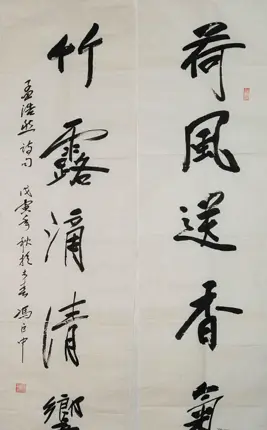 荷風送香氣
竹露滴清響
孟浩然詩句 戊寅年秋於 馮正中